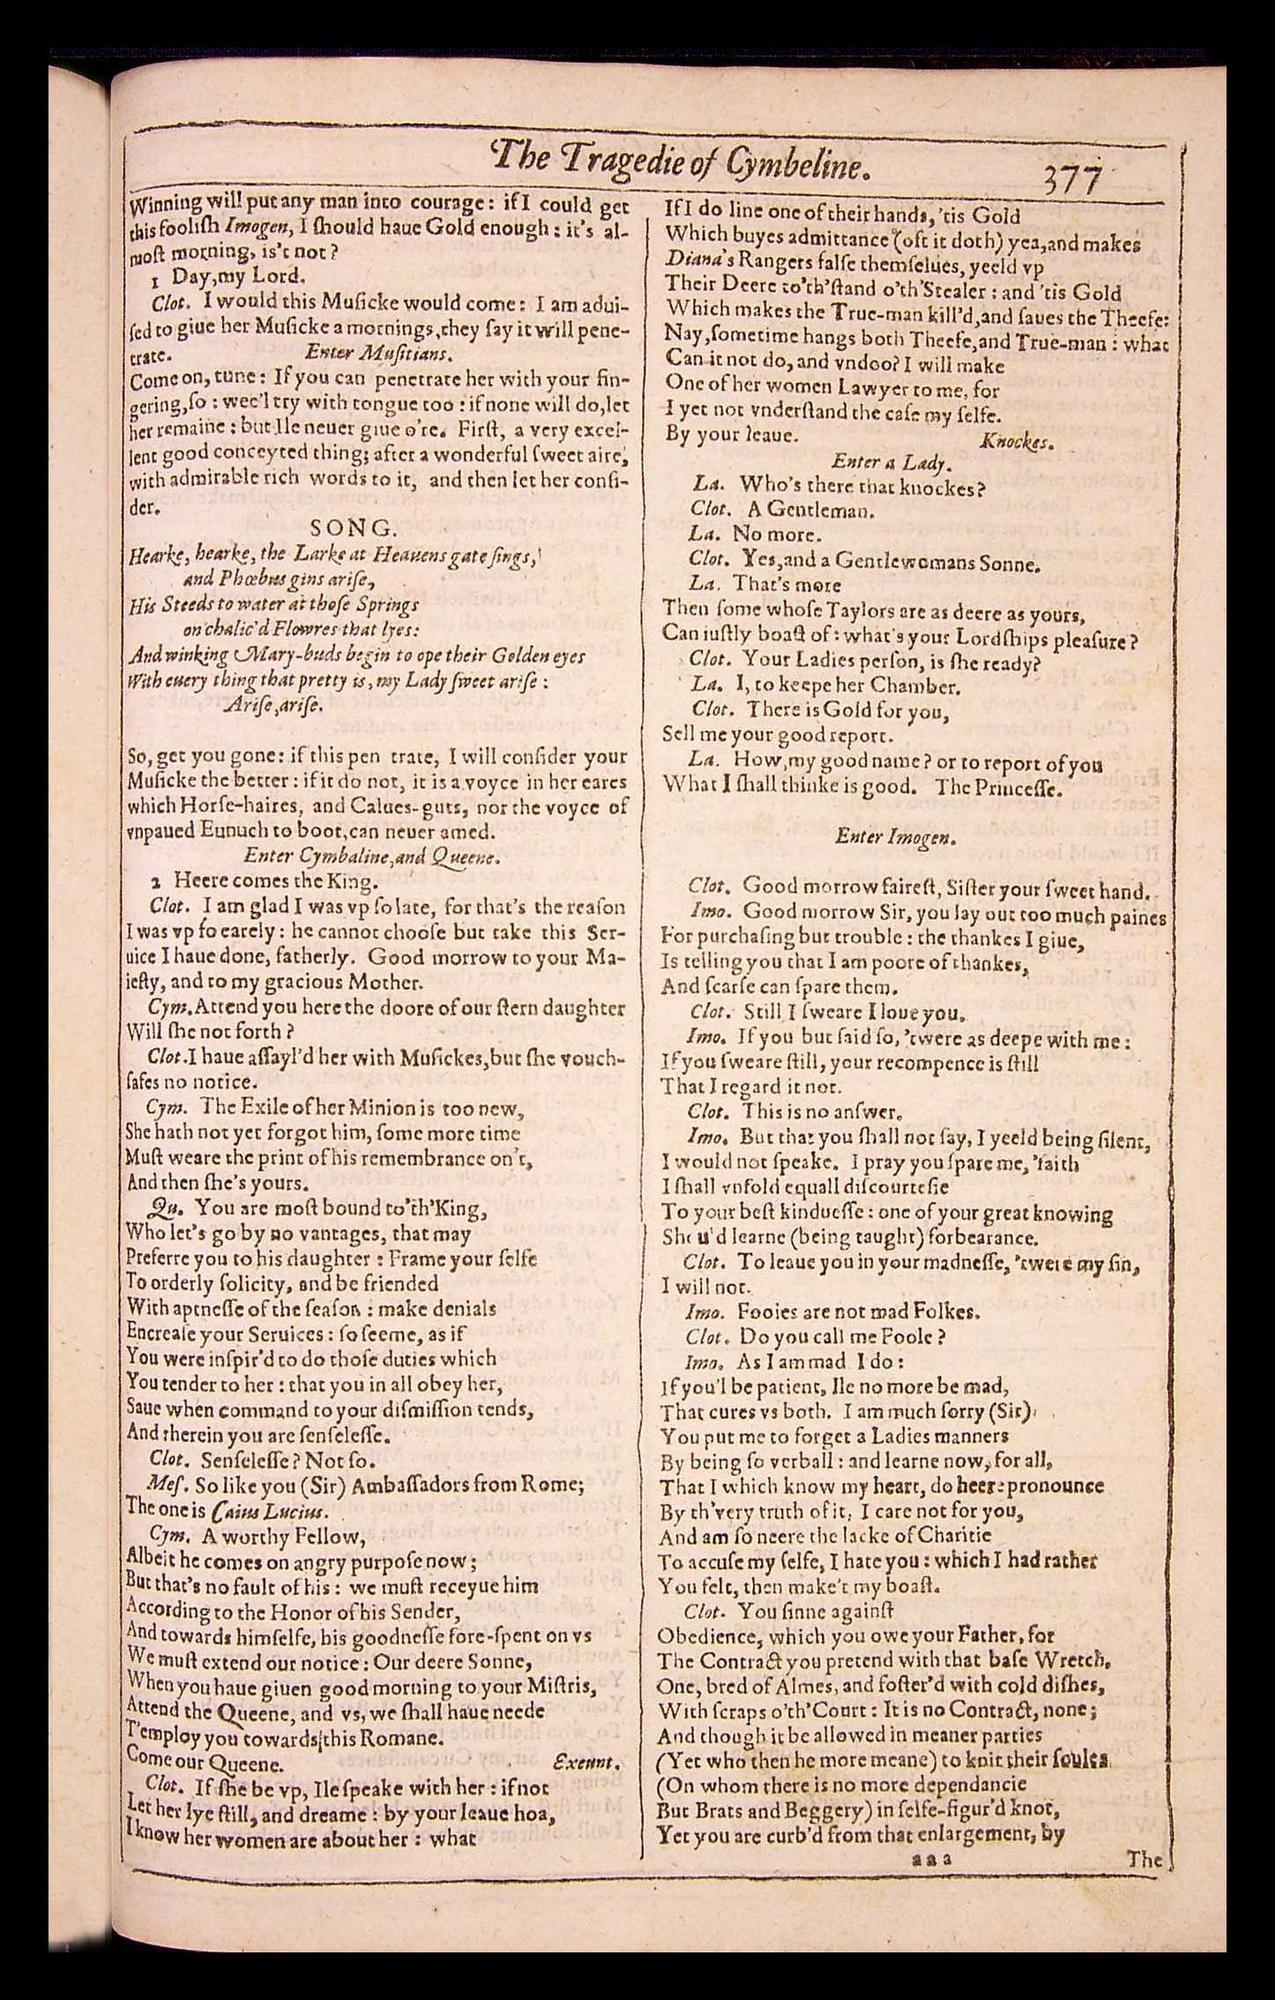 The Tragedie of Cymbeline.
377
Winning will put any man into courage: if I could get
this foolish Imogen, I should haue Gold enough: it's al-
most morning, is't not?
1 Day, my Lord.
Clot. I would this Musicke would come: I am adui-
sed to giue her Musicke a mornings, they say it will pene-
trate. Enter Musitians.
Come on, tune: If you can penetrate her with your fin-
gering, so: wee'l try with tongue too: if none will do, let
her remaine: but Ile neuer giue o're. First, a very excel-
lent good conceyted thing; after a wonderful sweet aire,
with admirable rich words to it, and then let her consi-
der.
SONG.
Hearke, hearke, the Larke at Heauens gate sings,
and Phœbus gins arise,
His Steeds to water at those Springs
on chalic'd Flowres that lyes:
And winking Mary-buds begin to ope their Golden eyes
With euery thing that pretty is, my Lady sweet arise:
Arise, arise.
So, get you gone: if this pen trate, I will consider your
Musicke the better: if it do not, it is a voyce in her eares
which Horse-haires, and Calues-guts, nor the voyce of
vnpaued Eunuch to boot, can neuer amed.
Enter Cymbaline, and Queene.
2 Heere comes the King.
Clot. I am glad I was vp so late, for that's the reason
I was vp so earely: he cannot choose but take this Ser-
uice I haue done, fatherly. Good morrow to your Ma-
iesty, and to my gracious Mother.
Cym. Attend you here the doore of our stern daughter
Will she not forth?
Clot. I haue assayl'd her with Musickes, but she vouch-
safes no notice.
Cym. The Exile of her Minion is too new,
She hath not yet forgot him, some more time
Must weare the print of his remembrance on't,
And then she's yours.
Qu. You are most bound to'th'King,
Who let's go by no vantages, that may
Preferre you to his daughter: Frame your selfe
To orderly solicity, and be friended
With aptnesse of the season: make denials
Encrease your Seruices: so seeme, as if
You were inspir'd to do those duties which
You tender to her: that you in all obey her,
Saue when command to your dismission tends,
And therein you are senselesse.
Clot. Senselesse? Not so.
Mes. So like you (Sir) Ambassadors from Rome;
The one is Caius Lucius.
Cym. A worthy Fellow,
Albeit he comes on angry purpose now;
But that's no fault of his: we must receyue him
According to the Honor of his Sender,
And towards himselfe, his goodnesse fore-spent on vs
We must extend our notice: Our deere Sonne,
When you haue giuen good morning to your Mistris,
Attend the Queene, and vs, we shall haue neede
T'employ you towards this Romane.
Come our Queene. Exeunt.
Clot. If she be vp, Ile speake with her: if not
Let her lye still, and dreame: by your leaue hoa,
I know her women are about her: what
If I do line one of their hands, 'tis Gold
Which buyes admittance (oft it doth) yea, and makes
Diana's Rangers false themselues, yeeld vp
Their Deere to'th'stand o'th'Stealer: and 'tis Gold
Which makes the True-man kill'd, and saues the Theefe:
Nay, sometime hangs both Theefe, and True-man: what
Can it not do, and vndoo? I will make
One of her women Lawyer to me, for
I yet not vnderstand the case my selfe.
By your leaue. Knockes.
Enter a Lady.
La. Who's there that knockes?
Clot. A Gentleman.
La. No more.
Clot. Yes, and a Gentlewomans Sonne.
La. That's more
Then some whose Taylors are as deere as yours,
Can iustly boast of: what's your Lordships pleasure?
Clot. Your Ladies person, is she ready?
La. I, to keepe her Chamber.
Clot. There is Gold for you,
Sell me your good report.
La. How, my good name? or to report of you
What I shall thinke is good. The Princesse.
Enter Imogen.
Clot. Good morrow fairest, Sister your sweet hand.
Imo. Good morrow Sir, you lay out too much paines
For purchasing but trouble: the thankes I giue,
Is telling you that I am poore of thankes,
And scarse can spare them.
Clot. Still I sweare I loue you.
Imo. If you but said so, 'twere as deepe with me:
If you sweare still, your recompence is still
That I regard it not.
Clot. This is no answer.
Imo. But that you shall not say, I yeeld being silent,
I would not speake. I pray you spare me, 'faith
I shall vnfold equall discourtesie
To your best kindnesse: one of your great knowing
Should learne (being taught) forbearance.
Clot. To leaue you in your madnesse, 'twere my sin,
I will not.
Imo. Fooles are not mad Folkes.
Clot. Do you call me Foole?
Imo. As I am mad I do:
If you'l be patient, Ile no more be mad,
That cures vs both. I am much sorry (Sir)
You put me to forget a Ladies manners
By being so verball: and learne now, for all,
That I which know my heart, do heere pronounce
By th'very truth of it, I care not for you,
And am so neere the lacke of Charitie
To accuse my selfe, I hate you: which I had rather
You felt, then make't my boast.
Clot. You sinne against
Obedience, which you owe your Father, for
The Contract you pretend with that base Wretch,
One, bred of Almes, and foster'd with cold dishes,
With scraps o'th'Court: It is no Contract, none;
And though it be allowed in meaner parties
(Yet who then he more meane) to knit their soules
(On whom there is no more dependancie
But Brats and Beggery) in selfe-figur'd knot,
Yet you are curb'd from that enlargement, by
aaa The